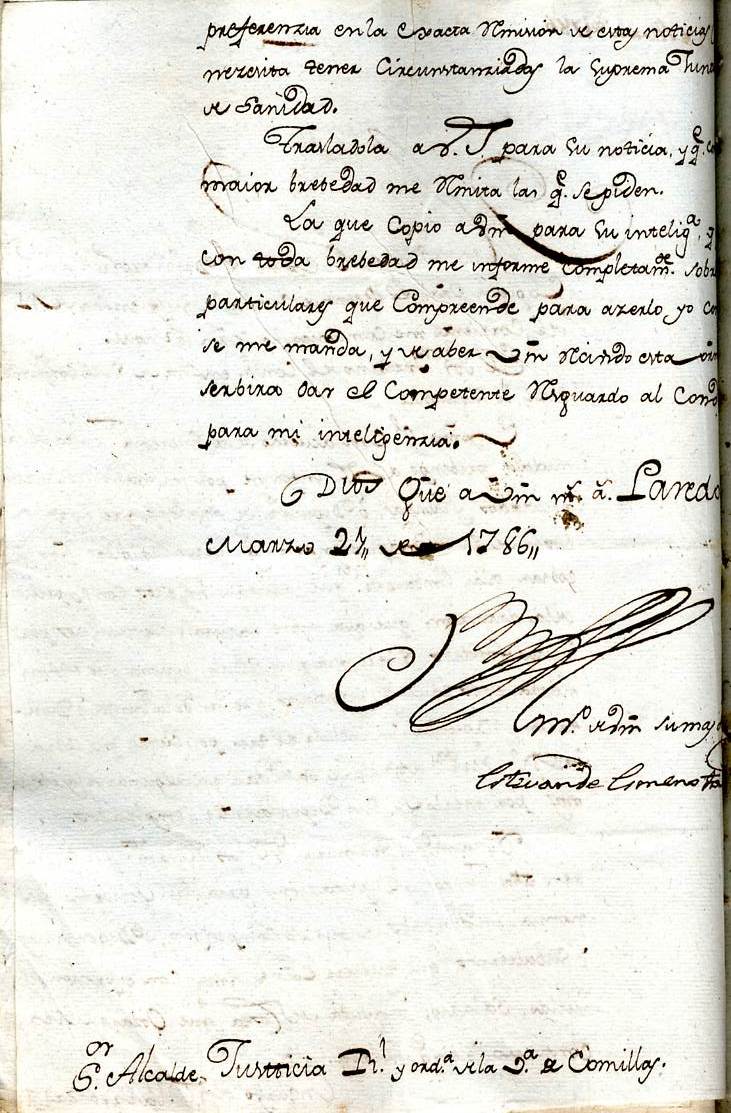 preferenzia en la exacta Rmision de estas noticias
nezesita tener Circunstanziadas la Suprema Junta
de Sanidad.
Trasladola a V. S para su noticia, y q.e con
maior brebedad me Rmita las q.e se piden.
La que Copio a Vm para su intelig.a, y
con toda brebedad me informe completam.te sobre
particulares que Compreende para azerlo yo como
se me manda, y de aber Vm Rciuido esta orn
serbira dar el Competente Rsguardo al Cond
para mi inteligenzia.
Dios Gūe a Vm m.s a.s Laredo
Marzo 27 de 1786
m.o de Vm su mayor
Estevan de
S.or Alcalde Justticia R.l y ord.a de la V.a de Comillas.